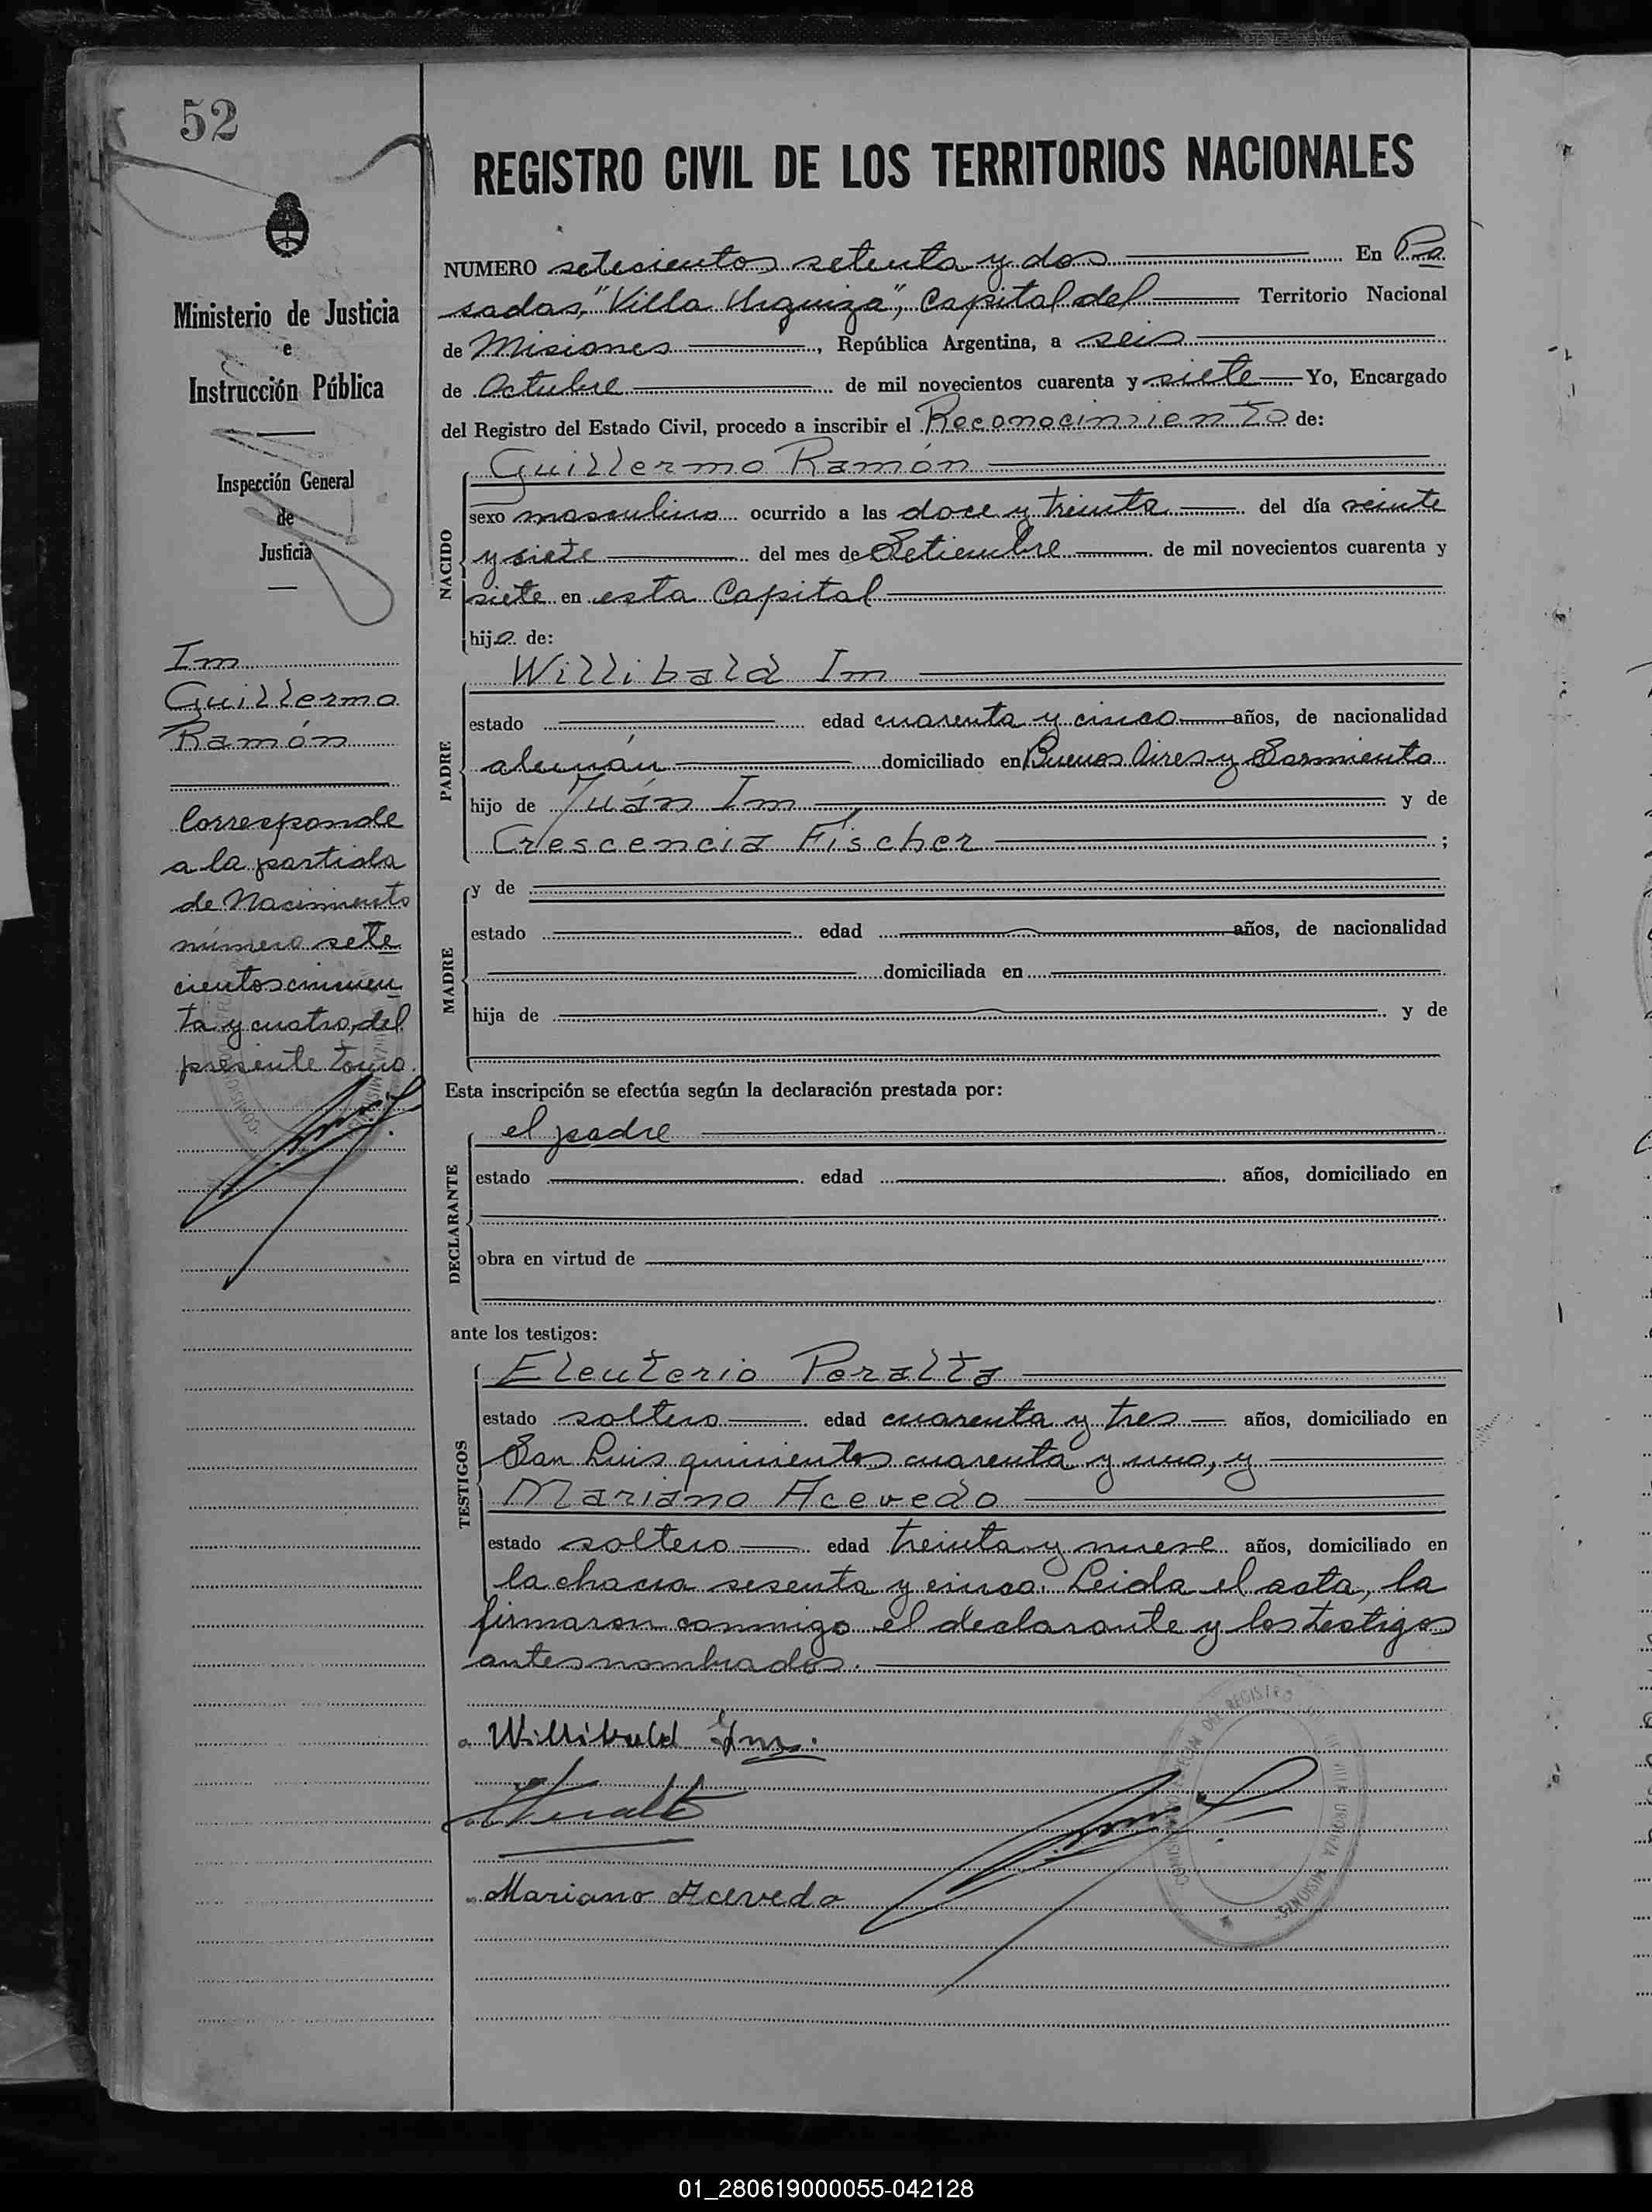 52
Ministerio de Justicia
e
Instrucción Pública
Inspección General
de
Justicia
Im
Guillermo
Ramón
Corresponde
a la partida
de Nacimiento
número sete
cientos cincuen
ta y cuatro, del
presente tomo.
REGISTRO CIVIL DE LOS TERRITORIOS NACIONALES
NUMERO setecientos setenta y dos En Po
sadas, "Villa Urquiza", Capital del Territorio Nacional
de Misiones, República Argentina, a seis
de Octubre de mil novecientos cuarenta y siete Yo, Encargado
del Registro del Estado Civil, procedo a inscribir el Reconocimiento de:
Guillermo Ramón
NACIDO
sexo masculino ocurrido a las doce y treinta del día veinte
y siete del mes de Setiembre de mil novecientos cuarenta y
siete en esta Capital
hijo de:
Willibald Im
PADRE
estado edad cuarenta y cinco años, de nacionalidad
alemán domiciliado en Buenos Aires y Sarmiento
hijo de Juán Im y de
Crescencia Fischer ;
MADRE
y de
estado edad años, de nacionalidad
domiciliada en
hija de y de
Esta inscripción se efectúa según la declaración prestada por:
el padre
DECLARANTE
estado edad años, domiciliado en
obra en virtud de
ante los testigos:
Eleuterio Peralta
TESTIGOS
estado soltero edad cuarenta y tres años, domiciliado en
San Luis quinientos cuarenta y uno, y
Mariano Acevedo
estado soltero edad treinta y nueve años, domiciliado en
la chacra sesenta y cinco. Leida el acta, la
firmaron conmigo el declarante y los testigos
antes nombrados.
Willibald Im.
Mariano Acevedo
REGISTRO
VILLA URQUIZA MISIONES
01_280619000055-042128